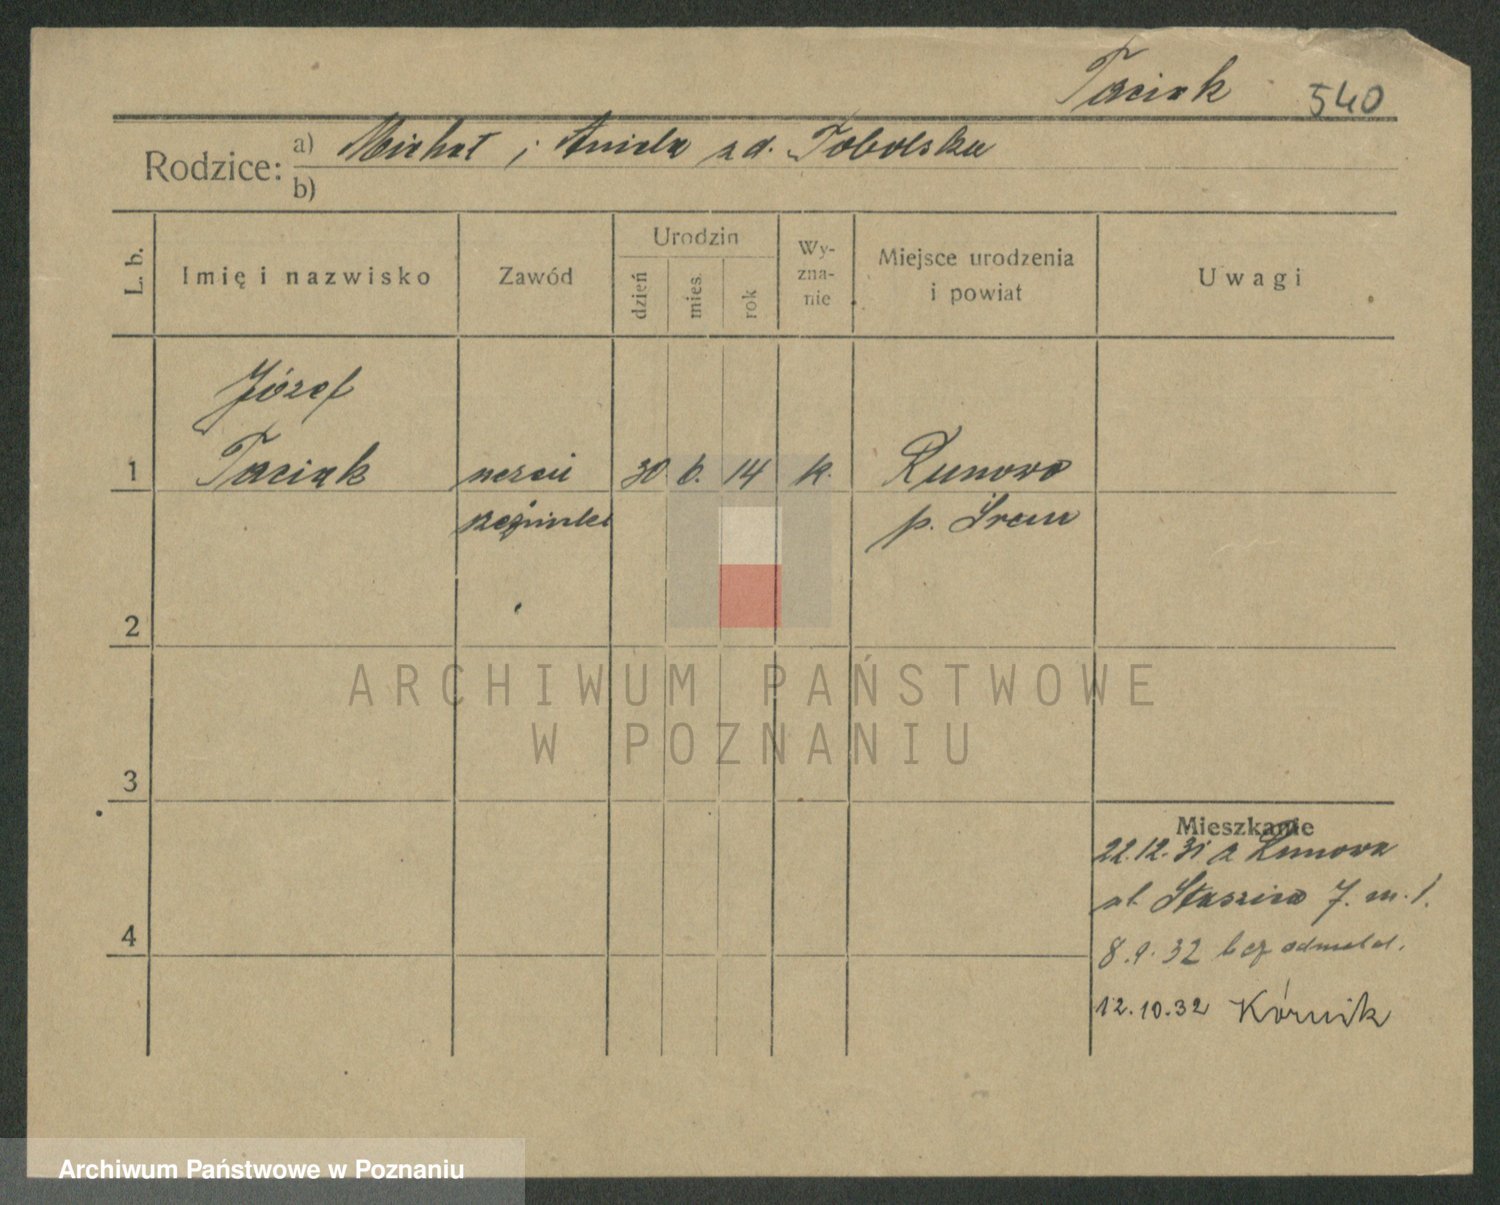 Taciak 540
Rodzice: a) Michał i Aniela zd. Tobolska
b)
L. b. Imię i nazwisko Zawód Urodzin dzień mies. rok Wy-zna-nie Miejsce urodzenia i powiat Uwagi
Józef
1 Taciak uczeń 30 6. 14 k. Runowo
rzeźnicki p. Śrem
2
3
4
Mieszkanie
22.12.31 z Runowa
ul. Staszica 7. m. 1.
8.9.32 bez odmeld.
12.10.32 Kórnik
ARCHIWUM PAŃSTWOWE
W POZNANIU
Archiwum Państwowe w Poznaniu